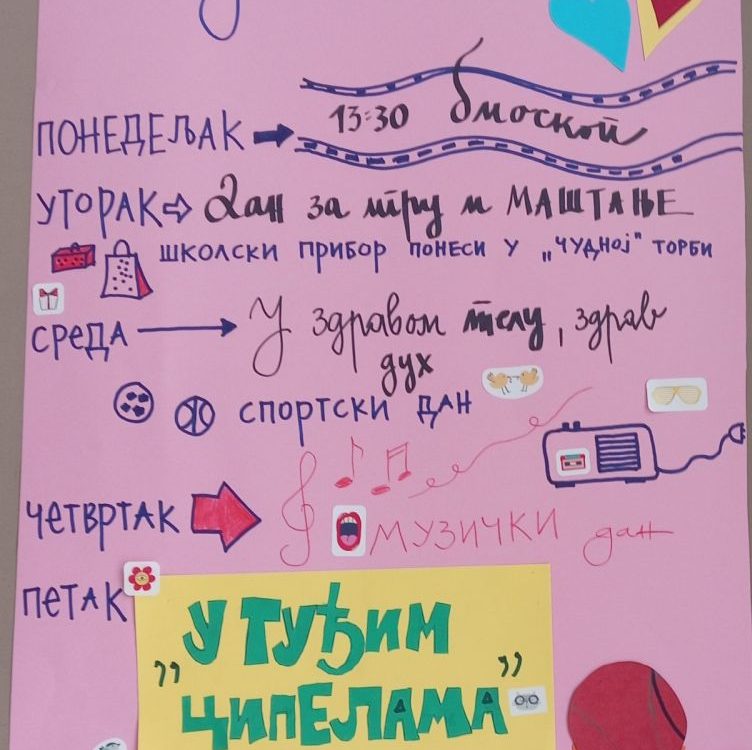 ПОНЕДЕЉАК 13:30 биоскоп
УТОРАК Дан за игру и МАШТАЊЕ
ШКОЛСКИ ПРИБОР ПОНЕСИ У „ЧУДНОЈ" ТОРБИ
СРЕДА У здравом телу, здрав
дух
СПОРТСКИ ДАН
ЧЕТВРТАК МУЗИЧКИ дан
ПЕТАК „У ТУЂИМ
ЦИПЕЛАМА”